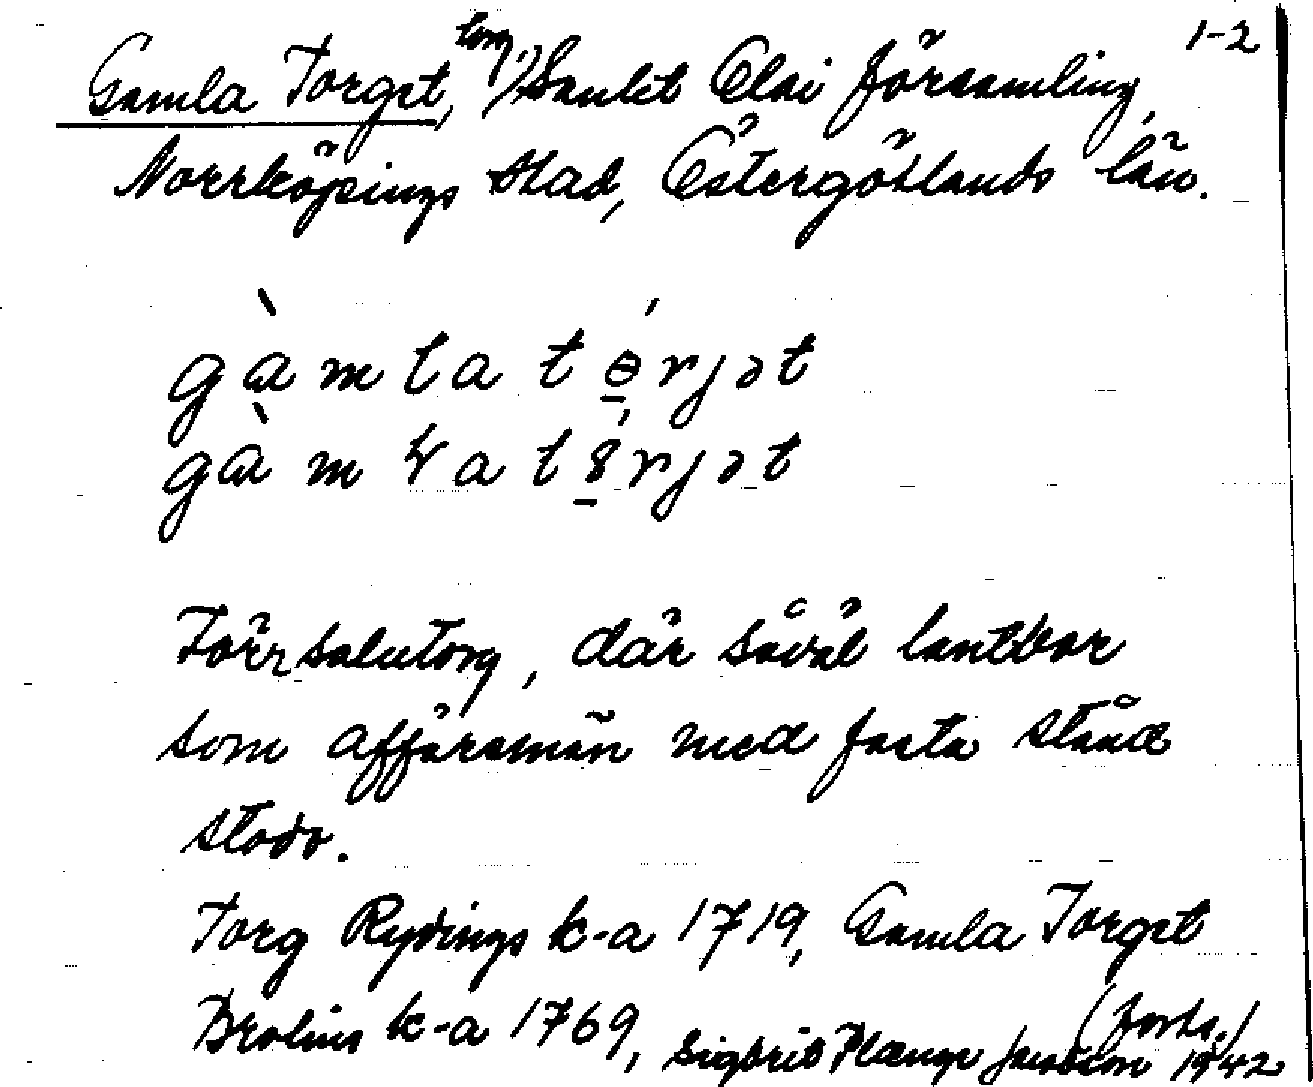 1-2
Gamla Torget, torg, Sankt Olai församling,
Norrköpings stad, Östergötlands län.
gàmla tɵ́rjət
tɵ́rjət
Förr salutorg, där såväl lantbor
som affärsmän med fasta stånd
stodo.
Torg Rydings k-a 1719, Gamla Torget
Brolins k-a 1769, (forts.)
Sigbrit Plænge Jacobson 1942